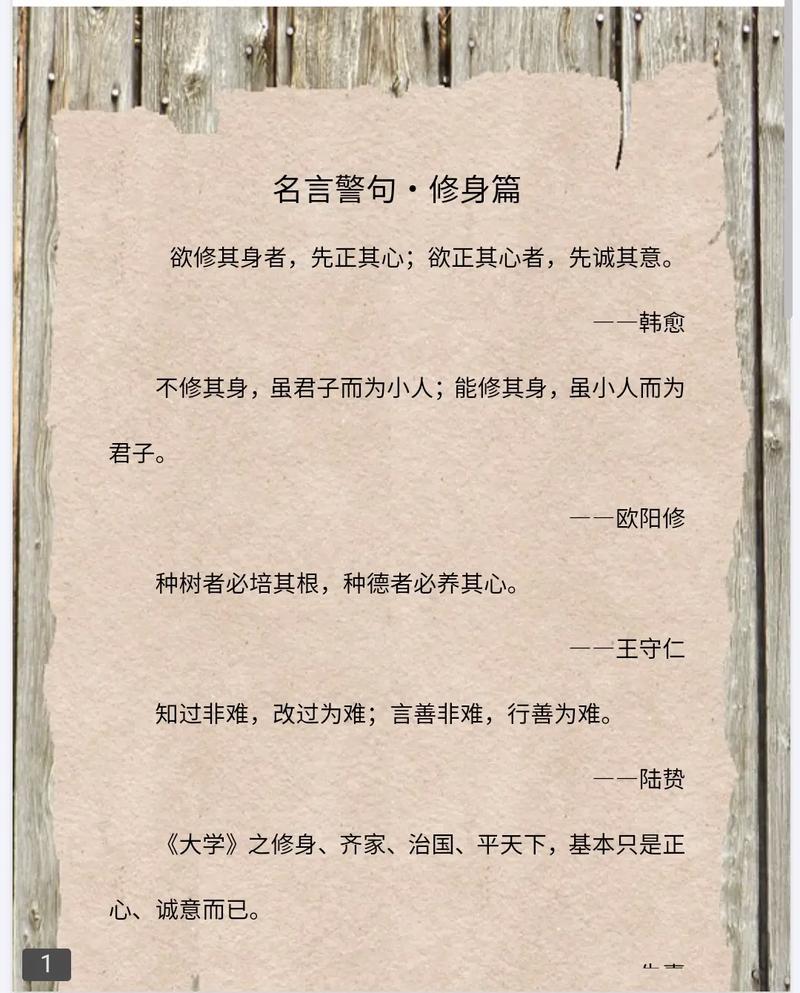 名言警句·修身篇
欲修其身者，先正其心；欲正其心者，先诚其意。
——韩愈
不修其身，虽君子而为小人；能修其身，虽小人而为
君子。
——欧阳修
种树者必培其根，种德者必养其心。
——王守仁
知过非难，改过为难；言善非难，行善为难。
——陆贽
《大学》之修身、齐家、治国、平天下，基本只是正
心、诚意而已。
1